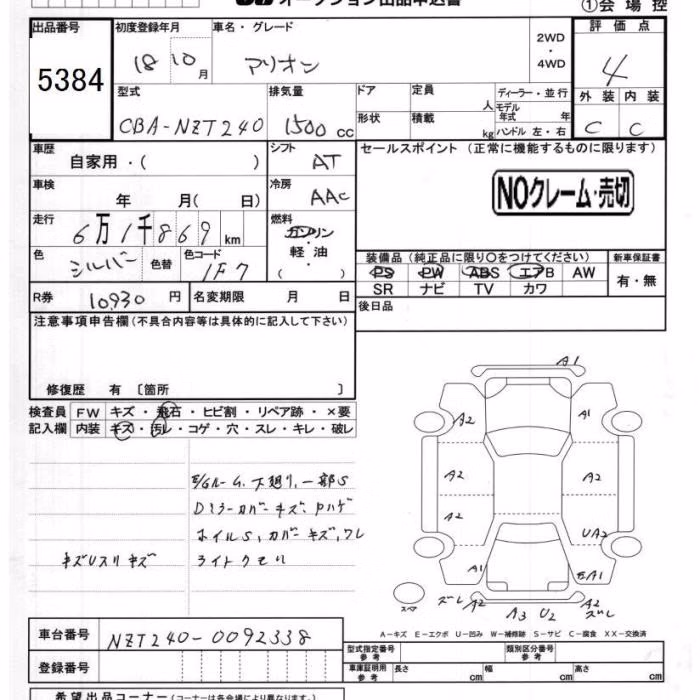 オークション出品申込書
①会場控
出品番号 初度登録年月 車名・グレード 評価点
5384 18 10月 アリオン 2WD・4WD 4
型式 排気量 ドア 定員 人 ディーラー・並行 外装 内装
CBA-NZT240 1500 cc 形状 積載 kg モデル年式 年 ハンドル 左・右 C C
車歴 自家用・( ) シフト AT セールスポイント (正常に機能するものに限ります)
車検 年 月( 日) 冷房 AAC
NOクレーム・売切
走行 6万1千869 km 燃料 ガソリン・軽油・( )
色 シルバー 色替 色コード 1F7
装備品 (純正品に限り○をつけてください) 新車保証書
PS PW ABS エアB AW 有・無
SR ナビ TV カワ
R券 10930 円 名変期限 月 日 後日品
注意事項申告欄 (不具合内容等は具体的に記入して下さい)
修復歴 有 〔箇所 〕
検査員 FW キズ・飛石・ヒビ割・リペア跡・×要
記入欄 内装 キズ・汚レ・コゲ・穴・スレ・キレ・破レ
E/Gルーム、下廻リ、一部S
Dミラーカバーキズ、ハゲ
ホイルS、カバーキズ、ワレ
キズUスリキズ ライトクモリ
A1
A2 A1
A2 A2
A2 UA2
A1 EA1
スペア ズレ A2 A3 U2 A2 ズレ
A-キズ E-エクボ U-凹み W-補修跡 S-サビ C-腐食 XX-交換済
車台番号 NZT240-0092338
型式指定番号 参考 類別区分番号 参考
登録番号
車庫証明用 参考 長さ cm 幅 cm 高さ cm
希望出品コーナー (コーナーは各会場により異なります)